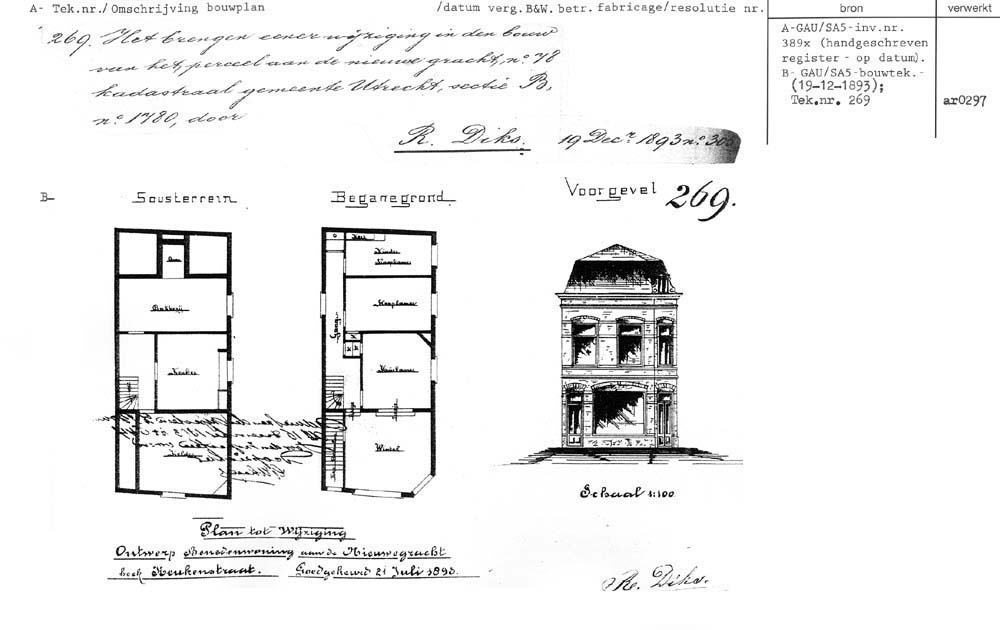 A- Tek.nr./Omschrijving bouwplan
/datum verg.B&W. betr. fabricage/resolutie nr.
bron
verwerkt
269. Het brengen eener wijziging in den bouw
van het perceel aan de nieuwe gracht, no 78
kadastraal gemeente Utrecht, sectie B,
no 1780, door
R. Diks.
19 Decr 1893 no 303
A-GAU/SA5-inv.nr.
389x (handgeschreven
register - op datum).
B- GAU/SA5-bouwtek.-
(19-12-1893);
Tek.nr. 269
ar0297
B-
Sousterrein
Beganegrond
Voorgevel
269.
Oven
Bakkerij
Keuken
Kelder
Kast
Kinder
Slaapkamer
Slaapkamer
Gang
Huiskamer
Winkel
Schaal 1:100
Plan tot Wijziging
Ontwerp Benedenwoning aan de Nieuwegracht
hoek Keukenstraat. Goedgekeurd 21 Juli 1893.
R. Diks.